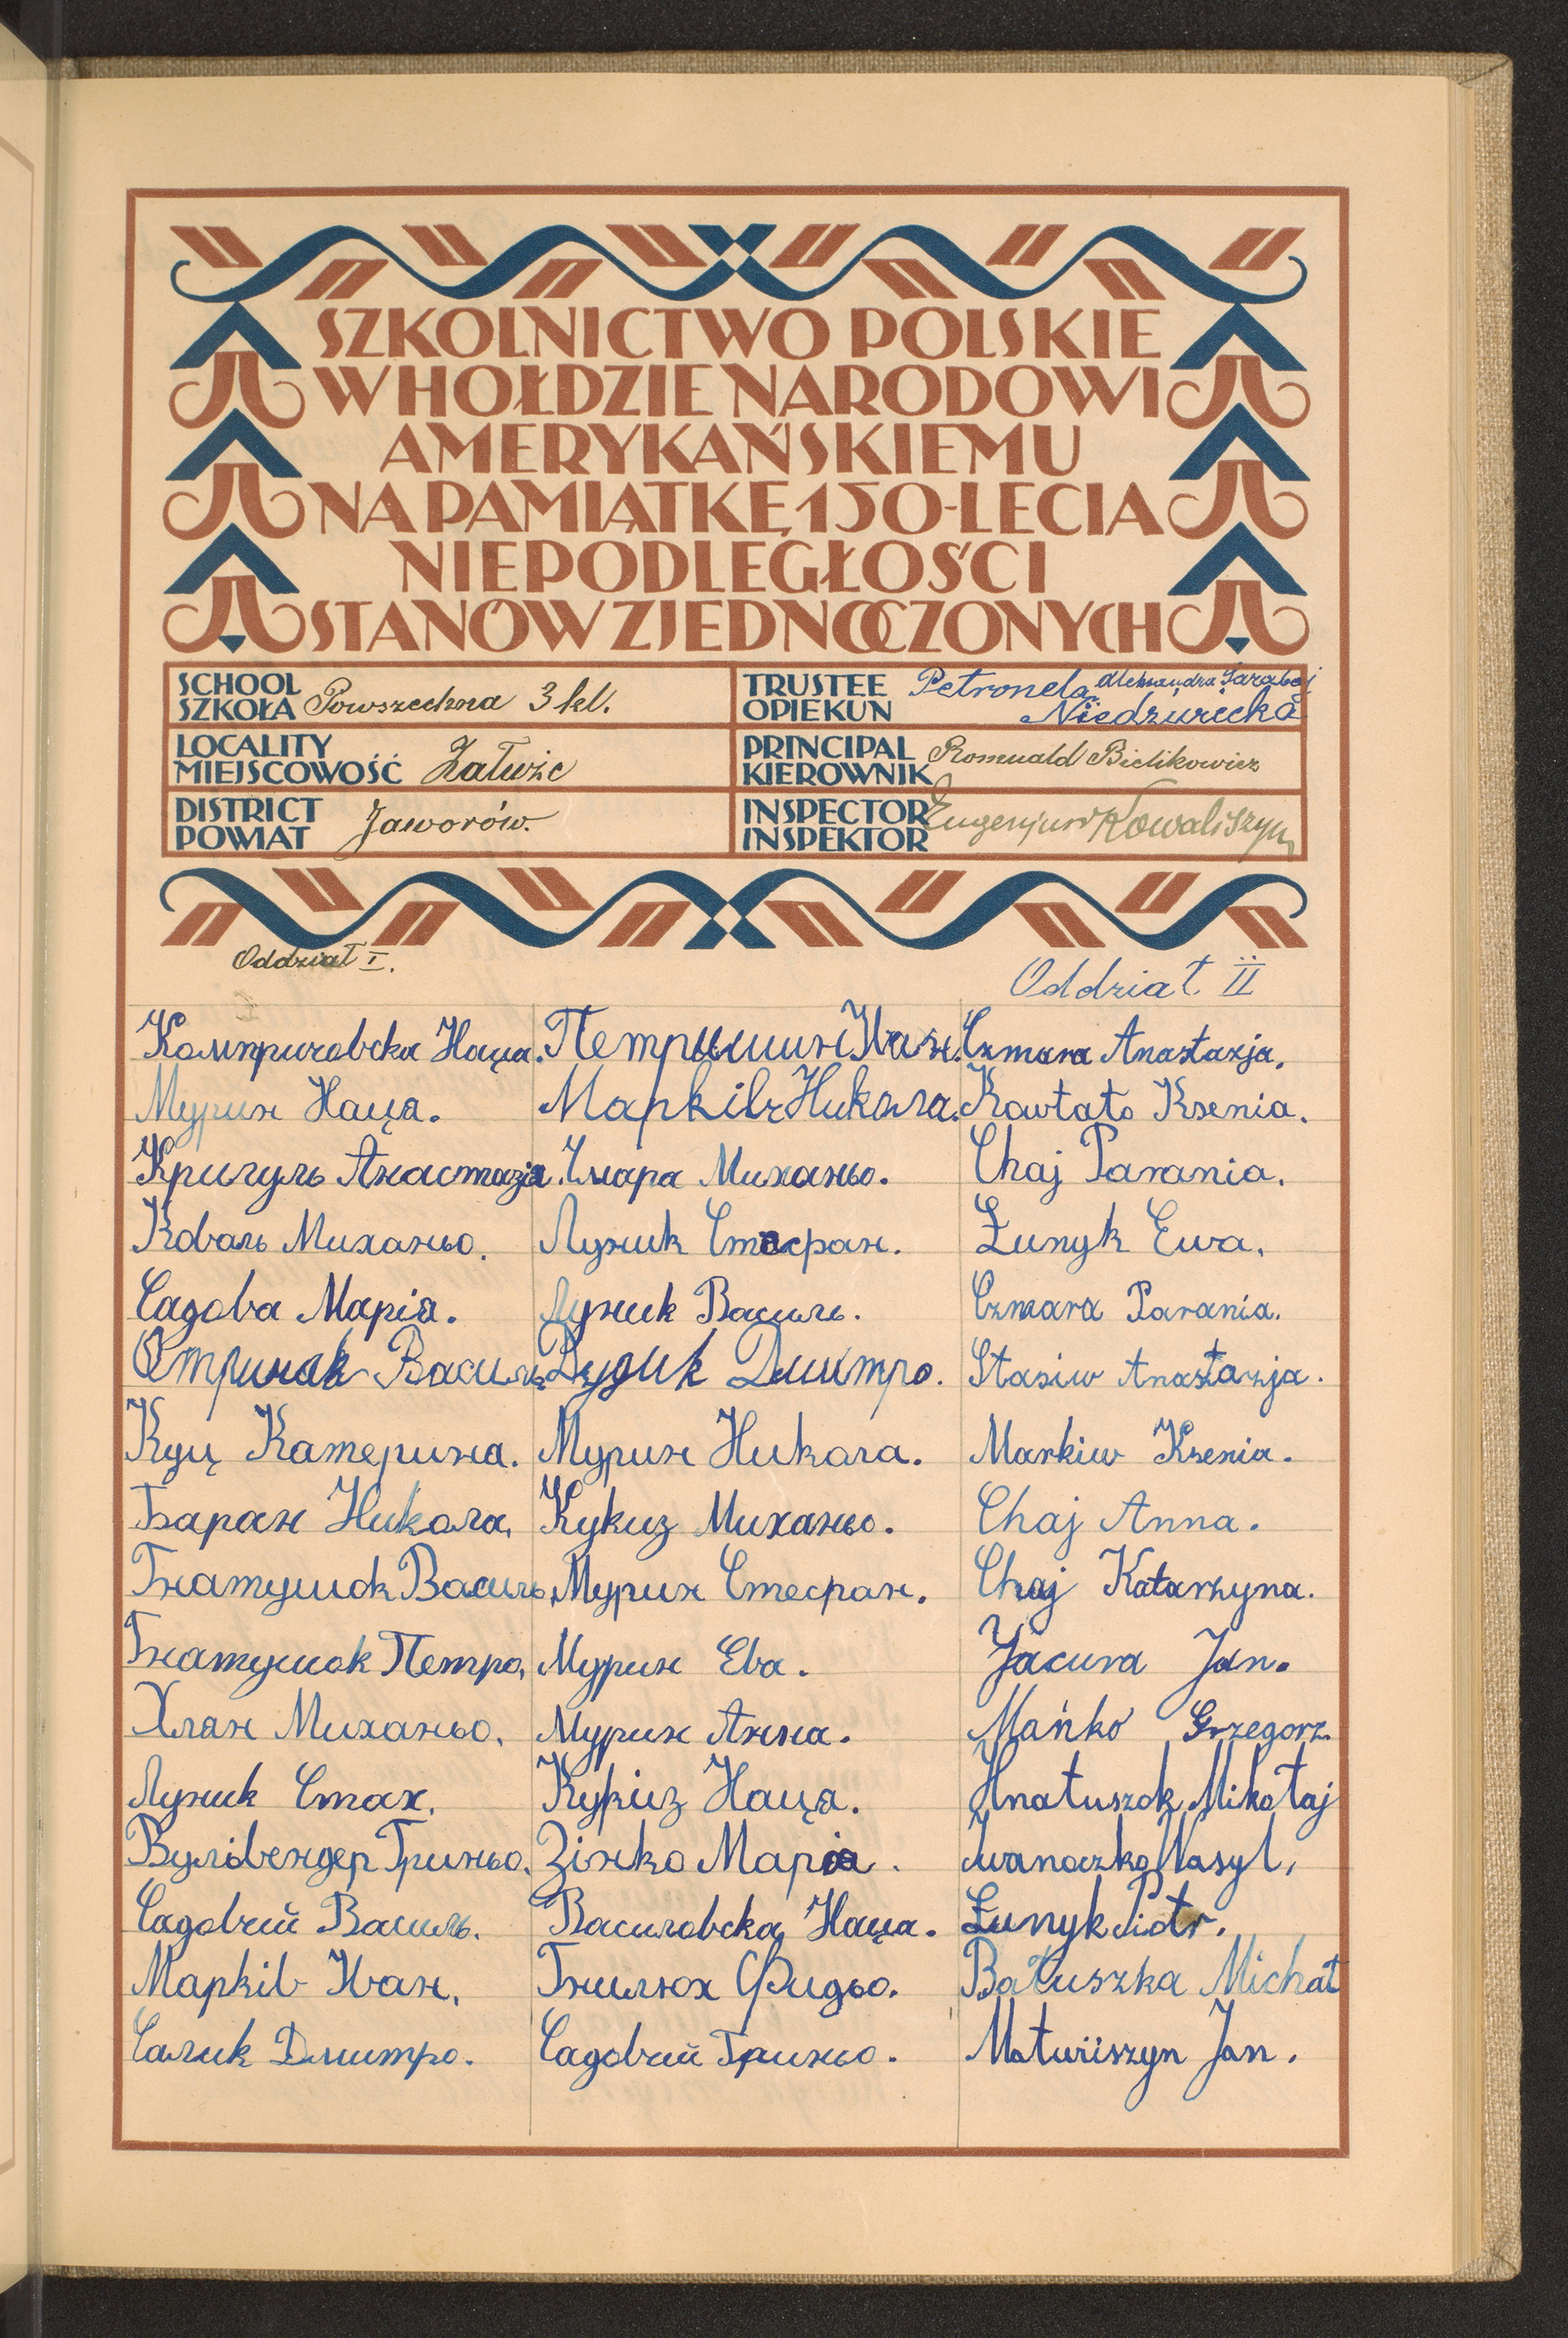 SZKOLNICTWO POLSKIE
W HOŁDZIE NARODOWI
AMERYKAŃSKIEMU
NA PAMIĄTKĘ 150-LECIA
NIEPODLEGŁOŚCI
STANÓW ZJEDNOCZONYCH
SCHOOL
SZKOŁA Powszechna 3 kl.
LOCALITY
MIEJSCOWOŚĆ Załuże
DISTRICT
POWIAT Jaworów.
TRUSTEE
OPIEKUN Petronela Aleksandra
PRINCIPAL
KIEROWNIK Romuald Bielikowicz
INSPECTOR
INSPEKTOR Eugenjusz Kowaliszyn
Oddział I.
Наця.
Мурин Наця.
Анастазія.
Коваль Миханьо.
Садова Марія.
Василь.
Куц Катерина.
Баран Никола.
Гнатушок Василь.
Гнатушок Петро.
Хлян Миханьо.
Луник Стах.
Вулівендер Гриньо.
Садовий Василь.
Марків Иван.
Салик Дмитро.
Петришин Иван.
Марків Никола.
Чмара Миханьо.
Луник Стефан.
Луник Василь.
Дудик Дмитро.
Мурин Никола.
Кукиз Миханьо.
Мурин Стефан.
Мурин Ева.
Мурин Анна.
Кукіз Наця.
Зінко Марія.
Василовска Наця.
Гнилюх Фидьо.
Садовий Гриньо.
Oddział II
Czmara Anastazja.
Kawtało Ksenia.
Chaj Parania.
Łunyk Ewa.
Czmara Parania.
Stasiw Anastazja.
Markiw Ksenia.
Chaj Anna.
Chaj Katarzyna.
Jacura Jan.
Mańko Grzegorz.
Hnatuszok Mikołaj
Iwanoczko Wasyl.
Łunyk Piotr.
Bałuszka Michał
Matwiiszyn Jan.